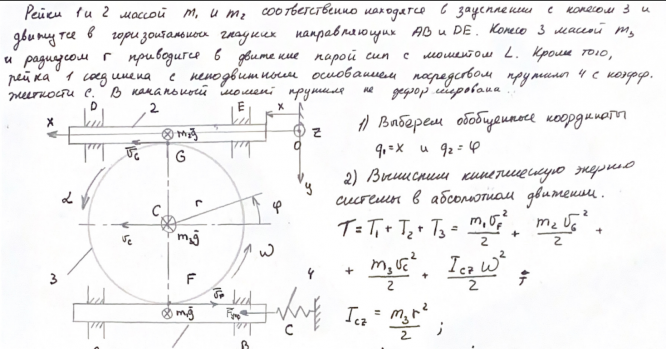 Рейки 1 и 2 массой m₁ и m₂ соответственно находятся в зацеплении с колесом 3 и
движутся в горизонтальных гладких направляющих AB и DE. Колесо 3 массой m₃
и радиусом r приводится в движение парой сил с моментом L. Кроме того,
рейка 1 соединена с неподвижным основанием посредством пружины 4 с коэфф.
жесткости c. В начальный момент пружина не деформирована..
D 2 E x
x m₂g⃗ O z
G
v⃗_G y
L r
C φ
v_C m₃g⃗
3 F ω 4
v⃗_F
m₁g⃗ F⃗упр C
B
1) Выберем обобщенные координаты
q₁=x и q₂=φ
2) Вычислим кинетическую энергию
системы в абсолютном движении.
T = T₁ + T₂ + T₃ = m₁v_F²/2 + m₂v_G²/2 +
+ m₃v_C²/2 + I_cz ω²/2 ;
I_cz = m₃r²/2 ;